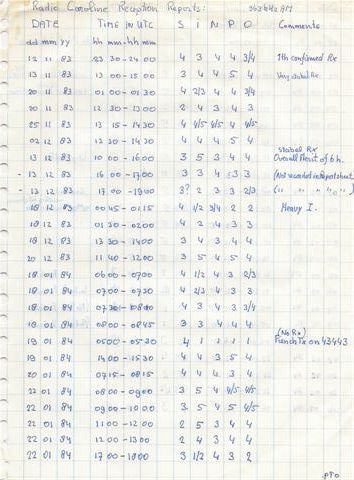 Radio Caroline Reception Reports: 963 kHz AM
DATE TIME IN UTC S I N P O Comments
dd mm yy hh mm - hh mm
12 11 83 23 30 - 24 00 4 3 4 4 3/4 1th confirmed Rx
13 11 83 13 00 - 15 00 3 4 4 5 4 Very stabel Rx
20 11 83 01 00 - 01 30 4 2/3 4 4 3/4
20 11 83 12 30 - 13 00 2 4 3 4 3
25 11 83 13 15 - 14 30 4 4/5 4/5 4 4/5
02 12 83 13 30 - 14 30 4 4 4 5 4
stabel Rx
13 12 83 10 00 - 16 00 3 5 3 4 4 Overall of 6 h.
- 13 12 83 16 00 - 17 00 3 3 4 3 3 (Not recorded in sheet
- 13 12 83 17 00 - 18 00 3? 2 3 3 2/3 (" " " " ")
18 12 83 00 45 - 01 15 4 1/2 3/4 2 2 Heavy I.
18 12 83 01 30 - 02 00 4 2 4 3 3
18 12 83 13 30 - 14 00 3 4 3 4 4
20 12 83 11 40 - 12 00 3 5 4 5 4
18 01 84 06 00 - 07 00 4 1/2 4 3 2/3
18 01 84 07 00 - 07 30 4 2/3 4 3 3
18 01 84 07 30 - 08 00 4 3 4 3 3/4
18 01 84 08 00 - 08 45 3 3 4 4 4
(No Rx)
19 01 84 05 00 - 05 30 4 1 1 1 1 French Tx on
19 01 84 14 00 - 15 30 4 4 3 5 4
20 01 84 07 15 - 08 15 4 4 4 3 4
22 01 84 08 00 - 09 00 3 5 4 4/5 4/5
22 01 84 09 00 - 10 00 3 5 4 5 4/5
22 01 84 11 00 - 12 00 2 5 3 4 4
22 01 84 12 00 - 13 00 2 4 3 4 4
22 01 84 17 00 - 18 00 3 1/2 4 3 2
PTO